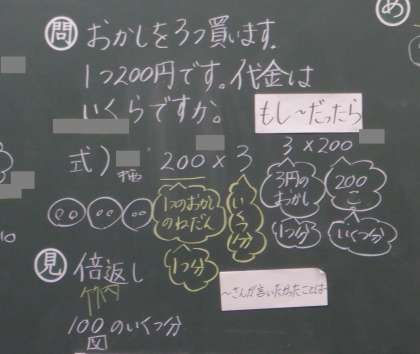 問 おかしを3つ買います。
1つ200円です。代金は
いくらですか。
もし〜だったら
式) 200×3 3×200
1つのおかしのねだん
いくつ分
3円のおかし
200こ
1つ分
1つ分
いくつ分
見 倍返し
〜さんが言いたかったことは
100のいくつ分
図
め
10